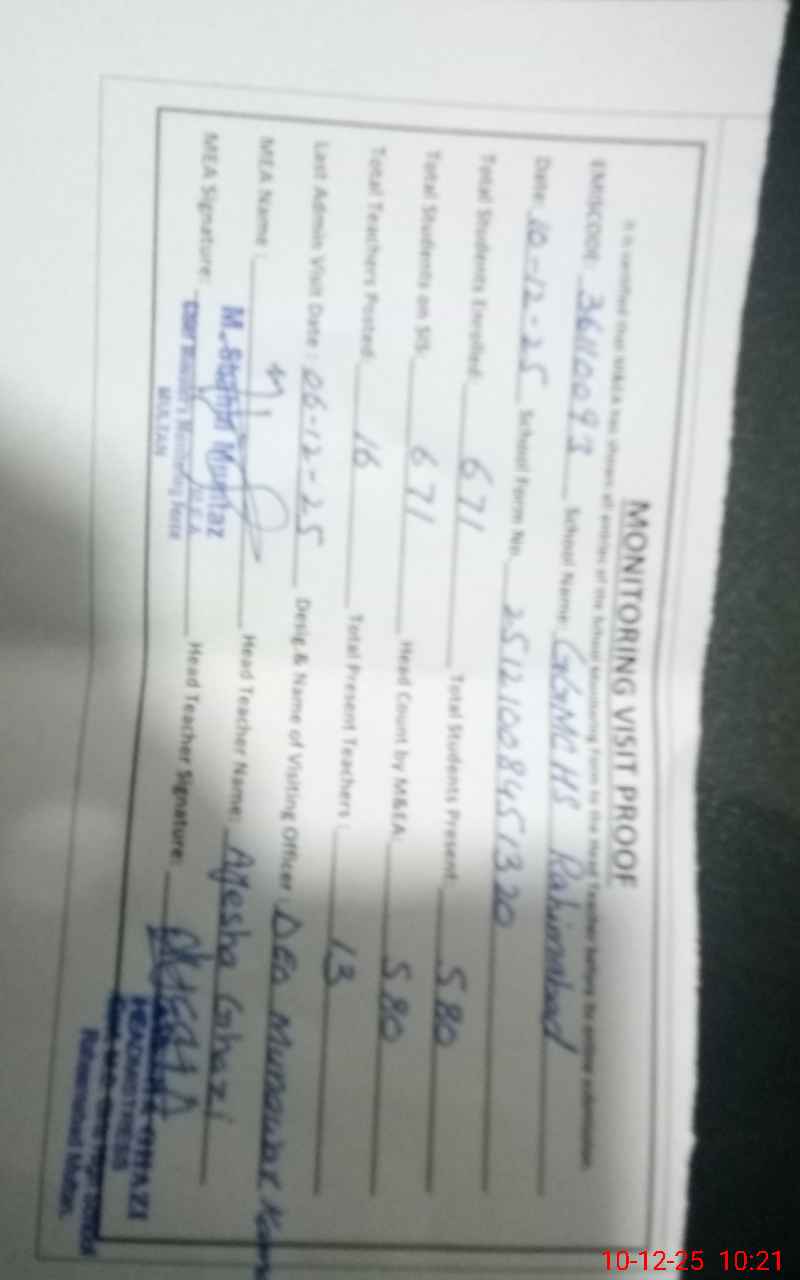 MONITORING VISIT PROOF
It is certified that M&EA has shown all entries of the School Monitoring Form to the Head Teacher before its online submission.
EMISCODE: 36110093 School Name: GGMCHS Rahimabad
Date: 10-12-25 School Form No. 25121008451320
Total Students Enrolled: 671 Total Students Present: 580
Total Students on SIS: 671 Head Count by M&EA: 580
Total Teachers Posted: 16 Total Present Teachers: 13
Last Admin Visit Date: 06-12-25 Desig & Name of Visiting Officer: DEO Munawar
MEA Name: Head Teacher Name: Ayesha Ghazi
M. Mumtaz
MEA Signature: Head Teacher Signature:
Monitoring Force
MULTAN
GHAZI
HEADMISTRESS
High School
Rahimabad Multan.
10-12-25 10:21